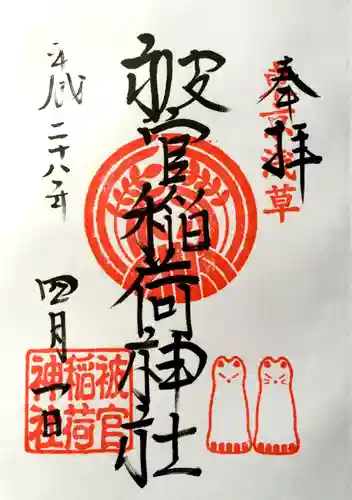 奉拝
東京浅草
被官稲荷神社
平成二十八年
四月一日
被官
稲荷
神社